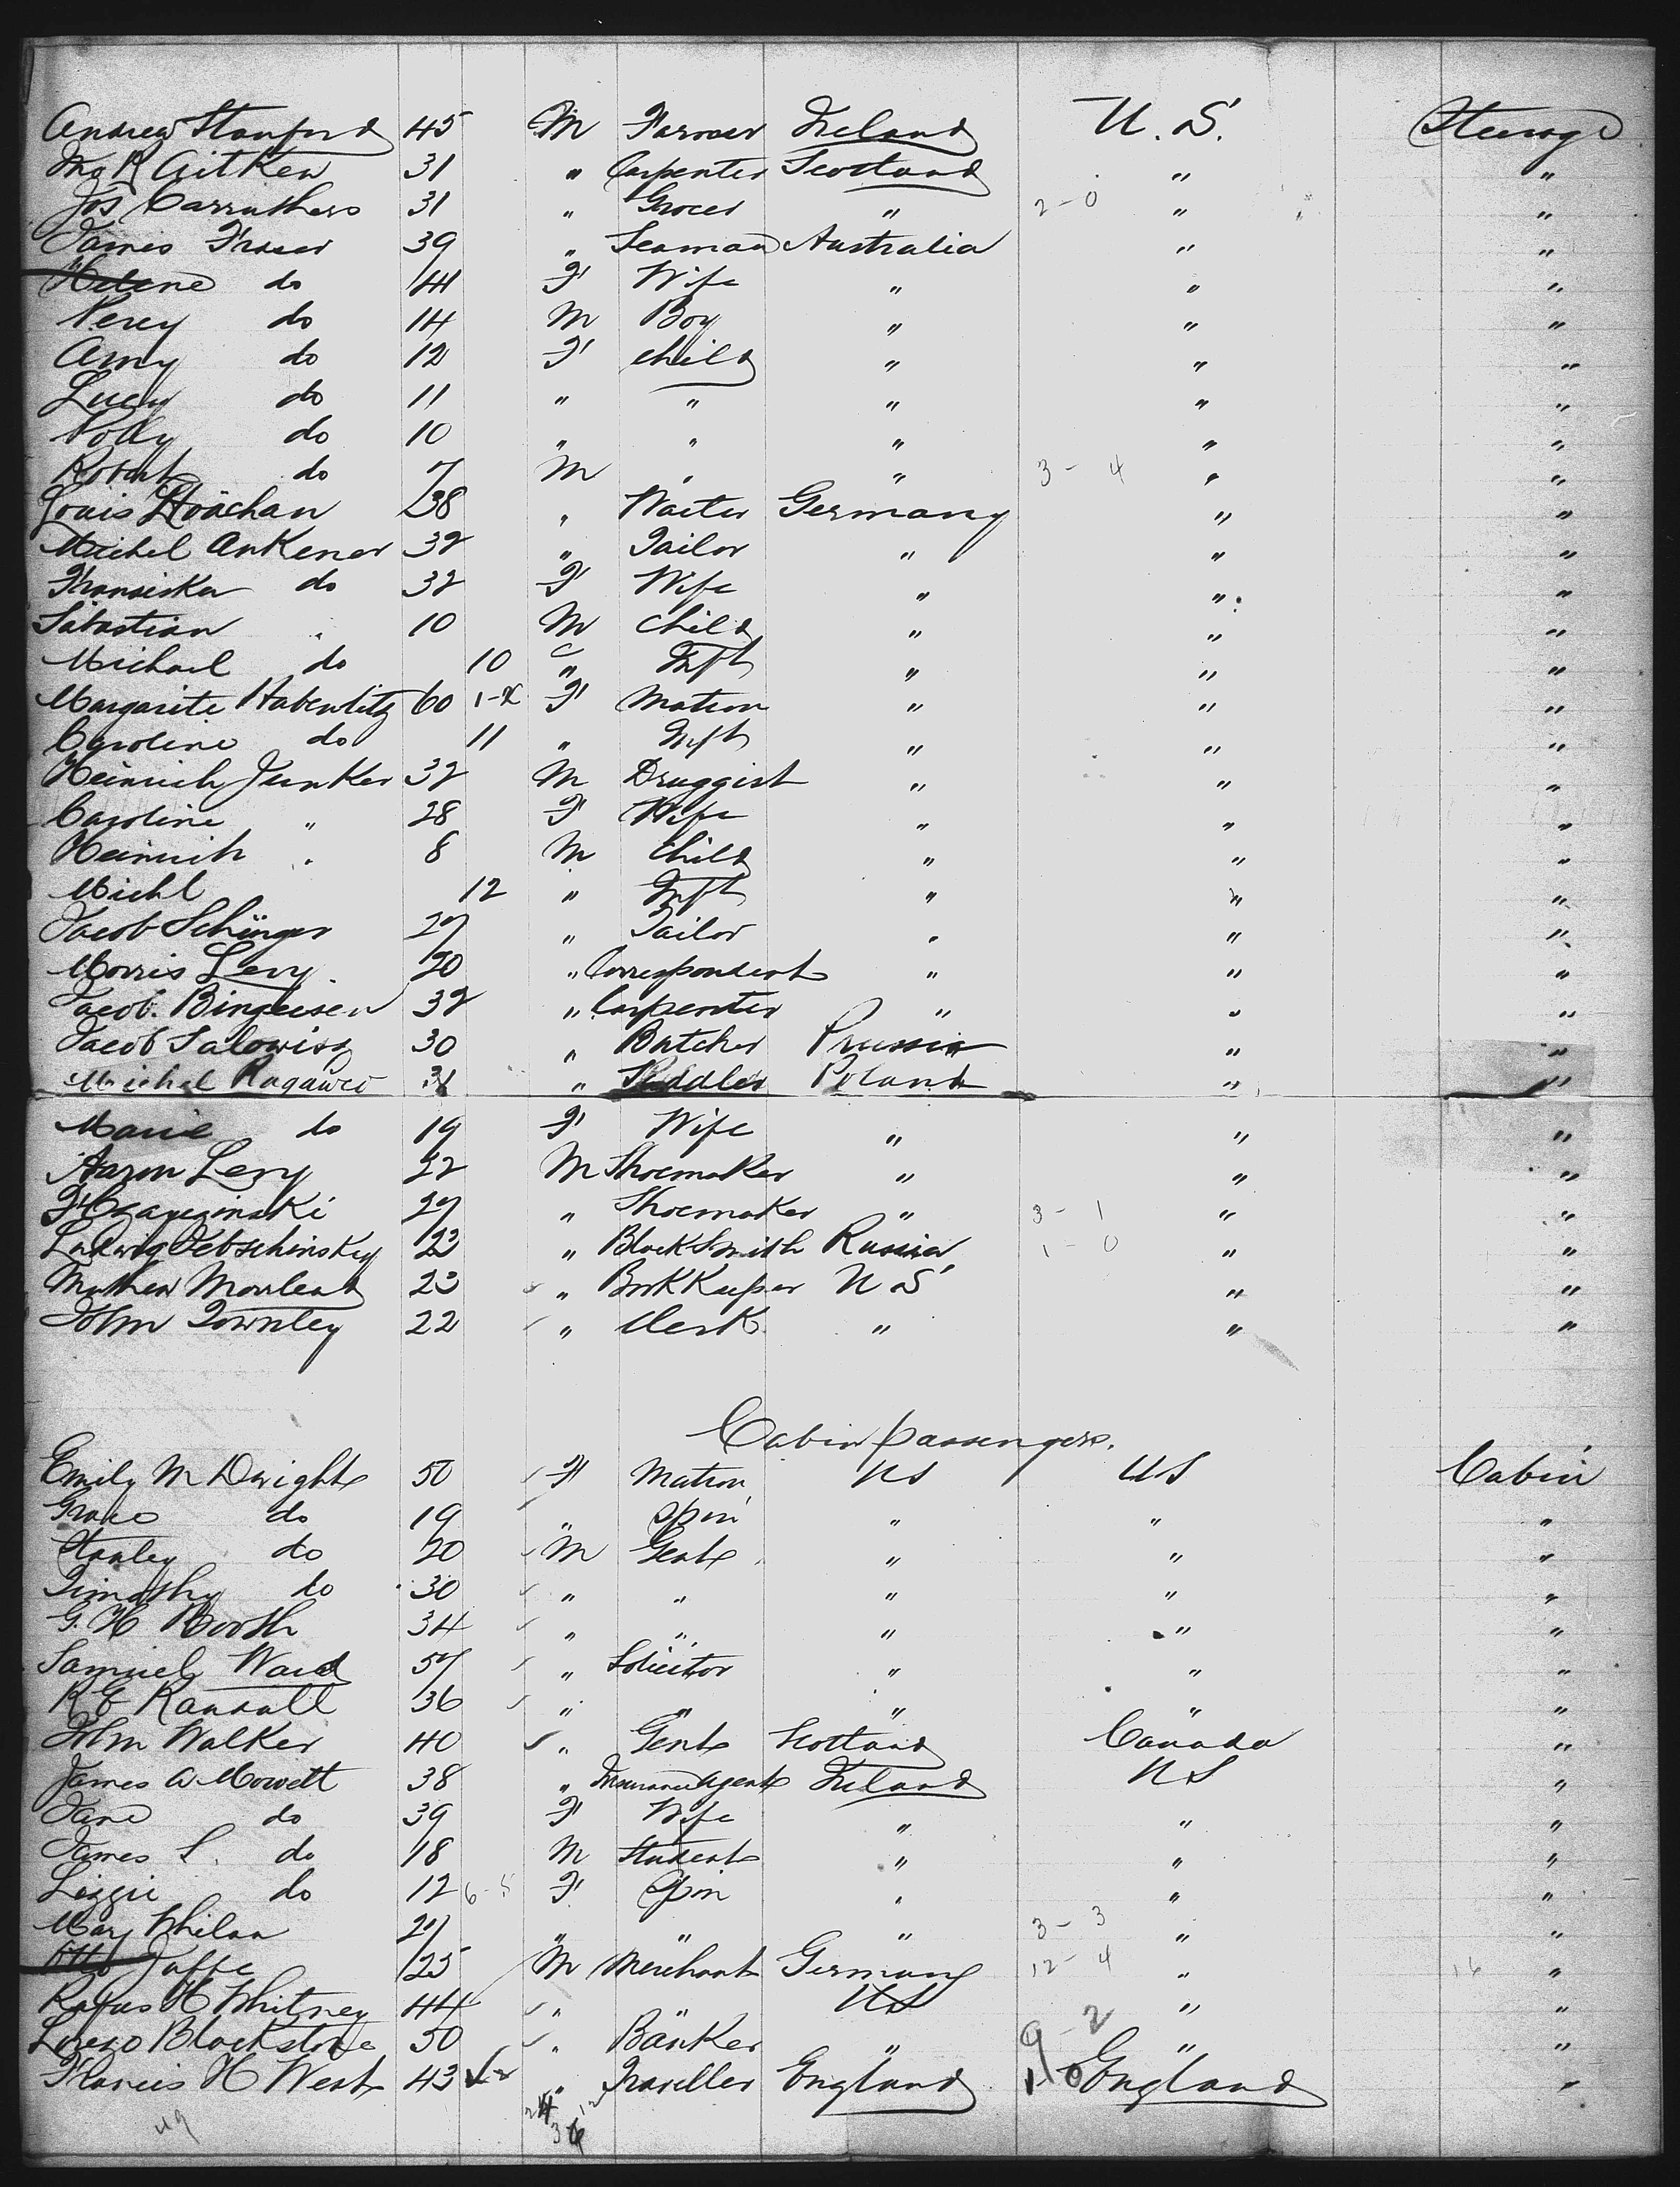 Andrew Stanford 45 M Farmer Ireland U.S. Steerage
R Aitken 31 " Carpenter Scotland " "
Jos Carruthers 31 " Grocer " 2-0 " "
James Fraser 39 " Seaman Australia " "
Helene do 41 F Wife " " "
Percy do 14 M Boy " " "
Amy do 12 F child " " "
Lucy do 11 " " " " "
Polly do 10 " " " " "
Robert do 7 M " " 3-4 " "
Louis 38 " Waiter Germany " "
Michel Ankener 32 " Tailor " " "
Fransiska do 32 F Wife " " "
Sabastian " 10 M Child " " "
Michael do 10 " Inft " " "
Margarite 60 F Matron " " "
Caroline do 11 " Inft " " "
Heinrich Junker 32 M Druggist " " "
Caroline " 28 F Wife " " "
Heinrich " 8 M Child " " "
Michl 12 " Inft " " "
Jacob 27 " Tailor " " "
Morris Levy 20 " Correspondent " " "
Jacob Bingeisen 32 " Carpenter " " "
Jacob Salowisz 30 " Butcher Prussia " "
Michel " Peddler Poland " "
Marie do 19 F Wife " " "
Aaron Levy 22 M Shoemaker " " "
27 " Shoemaker " 3-1 " "
Ludwig 23 " BlackSmith Russia 1-0 " "
Mathew Morland 23 " BookKeeper U S " "
John Townley 22 " Clerk " " "
Cabin passengers.
Emily M Dwight 50 F Matron US US Cabin
Grace do 19 " Spin " " "
Stanley do 20 M Gent " " "
Timothy do 30 " " " " "
G. H Booth 34 " " " " "
Samuel Ward 57 " Solicitor " " "
R E Randall 36 " " " " "
John Walker 40 " Gent Scotland Canada "
James A Mowett 38 " Insurance Agent Ireland US "
Jane do 39 F Wife " " "
James S. do 18 M Student " " "
Lizzie do 12 6-5 F Spin " " "
Mary Whilan 27 " " " 3-3 " "
Otto Jaffe 25 M Merchant Germany 12-4 " 16 "
Rufus H Whitney 44 " " US " "
Blackstone 50 " Banker " " "
Francis H West 43 " Traveller England England "
49